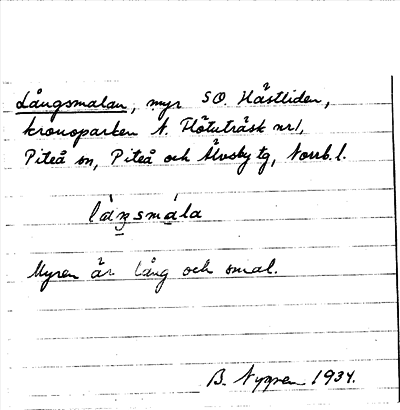 Långsmalan, myr SO. Hästliden,
kronoparken N. Flötuträsk nr 1,
Piteå sn, Piteå och Älvsby tg, Norrb. l.
låŋsmala
Myren är lång och smal.
B. Nygren 1934.